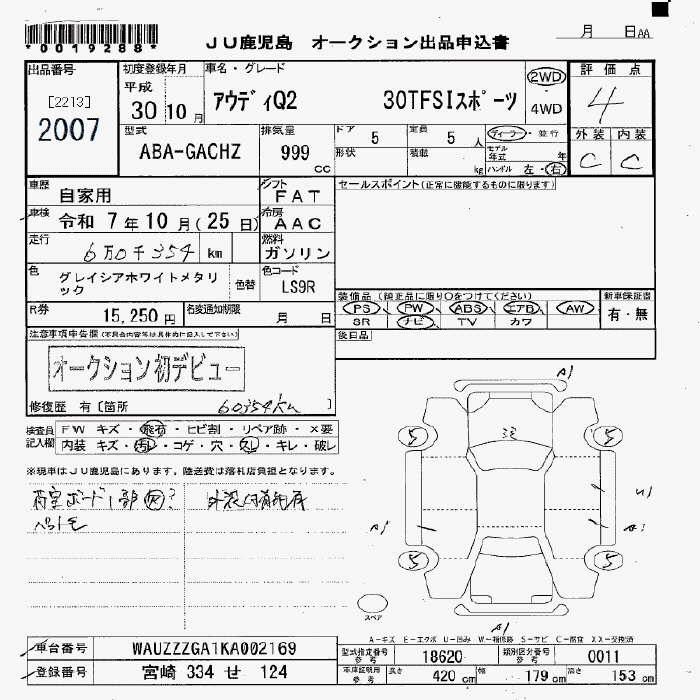 *0019288*
JU鹿児島 オークション出品申込書
月 日AA
出品番号 初度登録年月 車名・グレード 評価点
[2213] 平成 アウディQ2 30TFSIスポーツ 2WD 4
2007 30 10月 4WD
型式 排気量 ドア 定員 ディーラー・並行 外装 内装
ABA-GACHZ 999 CC 5 5人 モデル年式 年 C C
形状 積載 kg ハンドル 左・右
車歴 自家用 シフト FAT セールスポイント(正常に機能するものに限ります)
車検 令和 7年10月(25日) 冷房 AAC
走行 6万0千354 km 燃料 ガソリン
色 グレイシアホワイトメタリック 色替 色コード LS9R
装備品(純正品に限り○をつけてください) 新車保証書
R券 15,250円 名変通知期限 月 日 PS PW ABS エアB AW 有・無
SR ナビ TV カワ
注意事項申告欄(不具合内容等は具体的に記入して下さい) 後日品
オークション初デビュー
修復歴 有〔箇所 60354km 〕
A1
検査員記入欄 FW キズ・飛石・ヒビ割・リペア跡・X要
内装 キズ・汚れ・コゲ・穴・スレ・キレ・破レ
5 5
※現車はJU鹿児島にあります。陸送費は落札店負担となります。
荷室ボード1部
A1
5 5
スペア
A1
A-キズ E-エクボ U-凹み W-補修跡 S-サビ C-腐食 XX-交換済
車台番号 WAUZZZGA1KA002169 型式指定番号 参考 18620 類別区分番号 参考 0011
登録番号 宮崎 334 せ 124 車庫証明用 参考 長さ 420 cm 幅 179 cm 高さ 153 cm